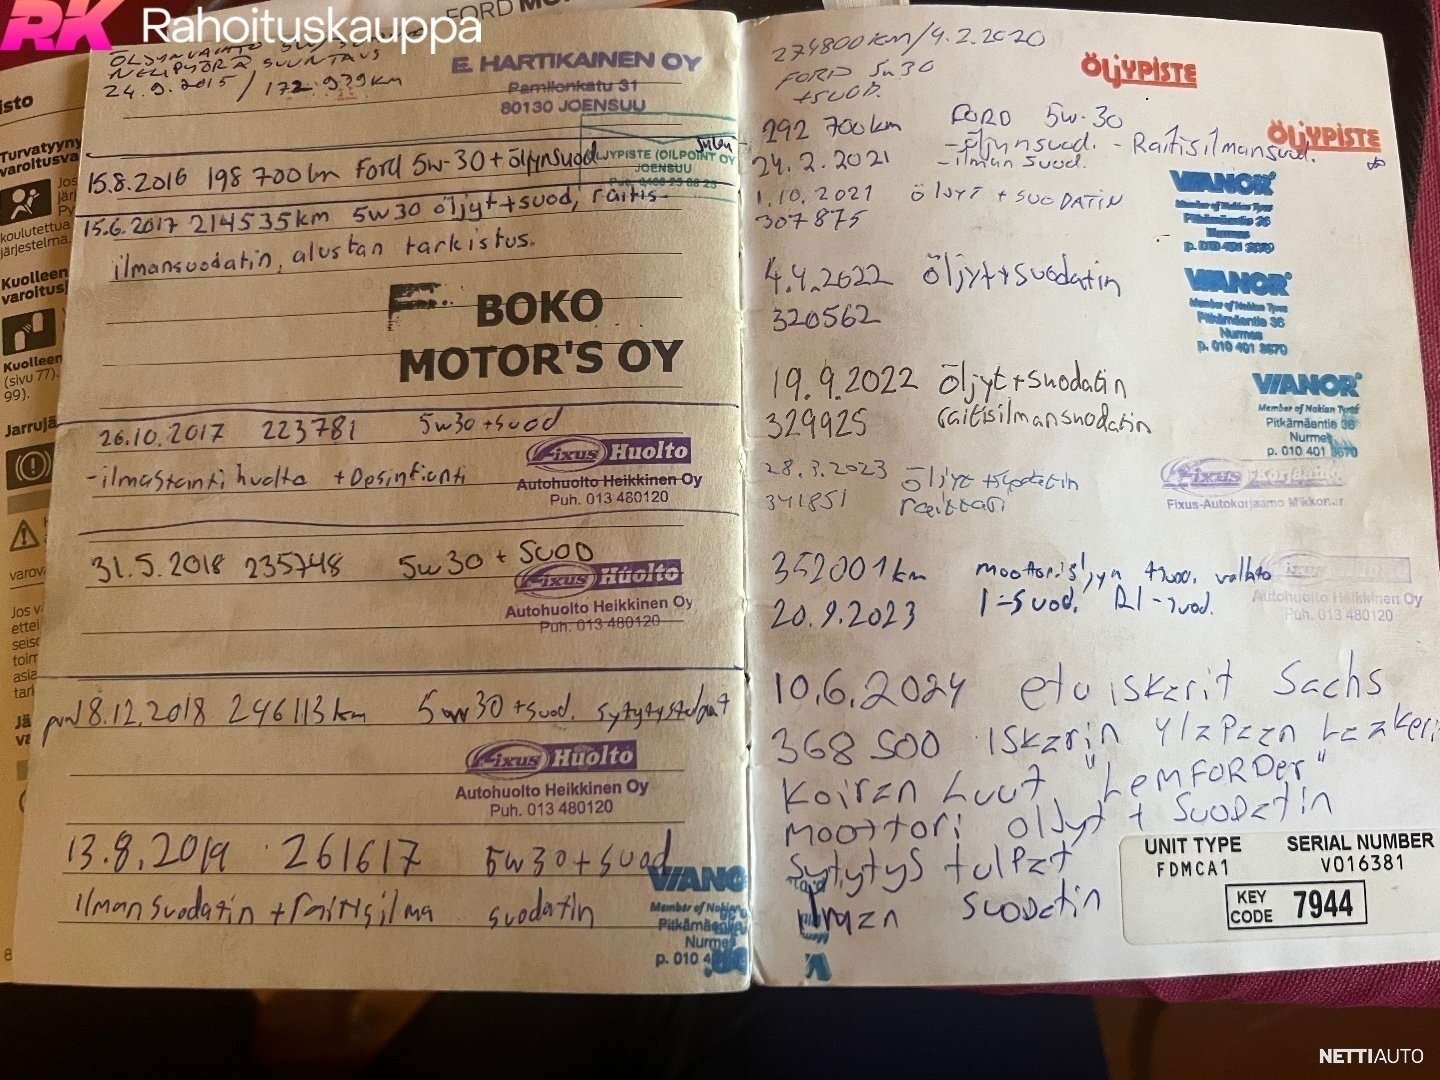 RK Rahoituskauppa
FORD
ÖLJYNVAIHTO 5W/
NELIPYÖRÄ SUUNTAUS
24.9.2015 / 172.939 km
E. HARTIKAINEN OY
Pamilonkatu 31
80130 JOENSUU
15.8.2016 198 700 km Ford 5w-30 + öljynsuod
ÖLJYPISTE (OILPOINT OY
JOENSUU
15.6.2017 214535 km 5w30 öljyt + suod, raitis-
ilmansuodatin, alustan tarkistus.
BOKO
MOTOR'S OY
26.10.2017 223781 5w30 + suod
Fixus Huolto
-ilmastanti huolto + Desinfionti
Autohuolto Heikkinen Oy
Puh. 013 480120
31.5.2018 235748 5w30 + SUOD
Fixus Huolto
Autohuolto Heikkinen Oy
Puh. 013 480120
pvm 18.12.2018 246113 km 5w30 + suod. sytytystulpat
Fixus Huolto
Autohuolto Heikkinen Oy
Puh. 013 480120
13.8.2019 261617 5w30 + suod
ilmansuodatin + raitisilma suodatin
VIANO
Member of Nokian
Pitkämäe
Nurmes
p. 010 4
274800 km / 4.2.2020
FORD 5w30
+ SUOD.
ÖLJYPISTE
292 700 km FORD 5w-30
24.2.2021 -öljynsuod. - Raitisilmansuod.
-ilman suod.
ÖLJYPISTE
1.10.2021 ÖLJYT + SUODATIN
307875
VIANOR
Member of Nokian Tyres
Pitkämäentie 36
Nurmes
p. 010 401 3670
4.4.2022 Öljyt + suodatin
320562
VIANOR
Member of Nokian Tyres
Pitkämäentie 36
Nurmes
p. 010 401 3670
19.9.2022 Öljyt + suodatin
329925 raitisilmansuodatin
VIANOR
Member of Nokian Tyres
Pitkämäentie 36
Nurmes
p. 010 401 3670
28.3.2023 Öljyt + suodatin
341851
Fixus
Fixus-Autokorjaamo Mikkonen
352001 km moottoriöljyn + suod. vaihto
20.9.2023 I-suod. RI-suod.
Fixus
Autohuolto Heikkinen Oy
Puh. 013 480120
10.6.2024 etu iskarit Sachs
368 500 Iskarin yläpään Laakeri
Koiran Luut "LEMFORDer"
moottori Öljyt + Suodatin
Sytytys tulpat
Ilman Suodatin
UNIT TYPE SERIAL NUMBER
FDMCA1 V016381
KEY CODE 7944
isto
Turvatyyny
varoitusva
Jos
järj
Py
koulutettua
järjestelmä.
Kuolleen
varoitus
Kuolleen
(sivu 77).
99).
Jarrujä
varov
Jos v
ettei
seiso
toim
asia
tark
Jä
va
8
NETTIAUTO